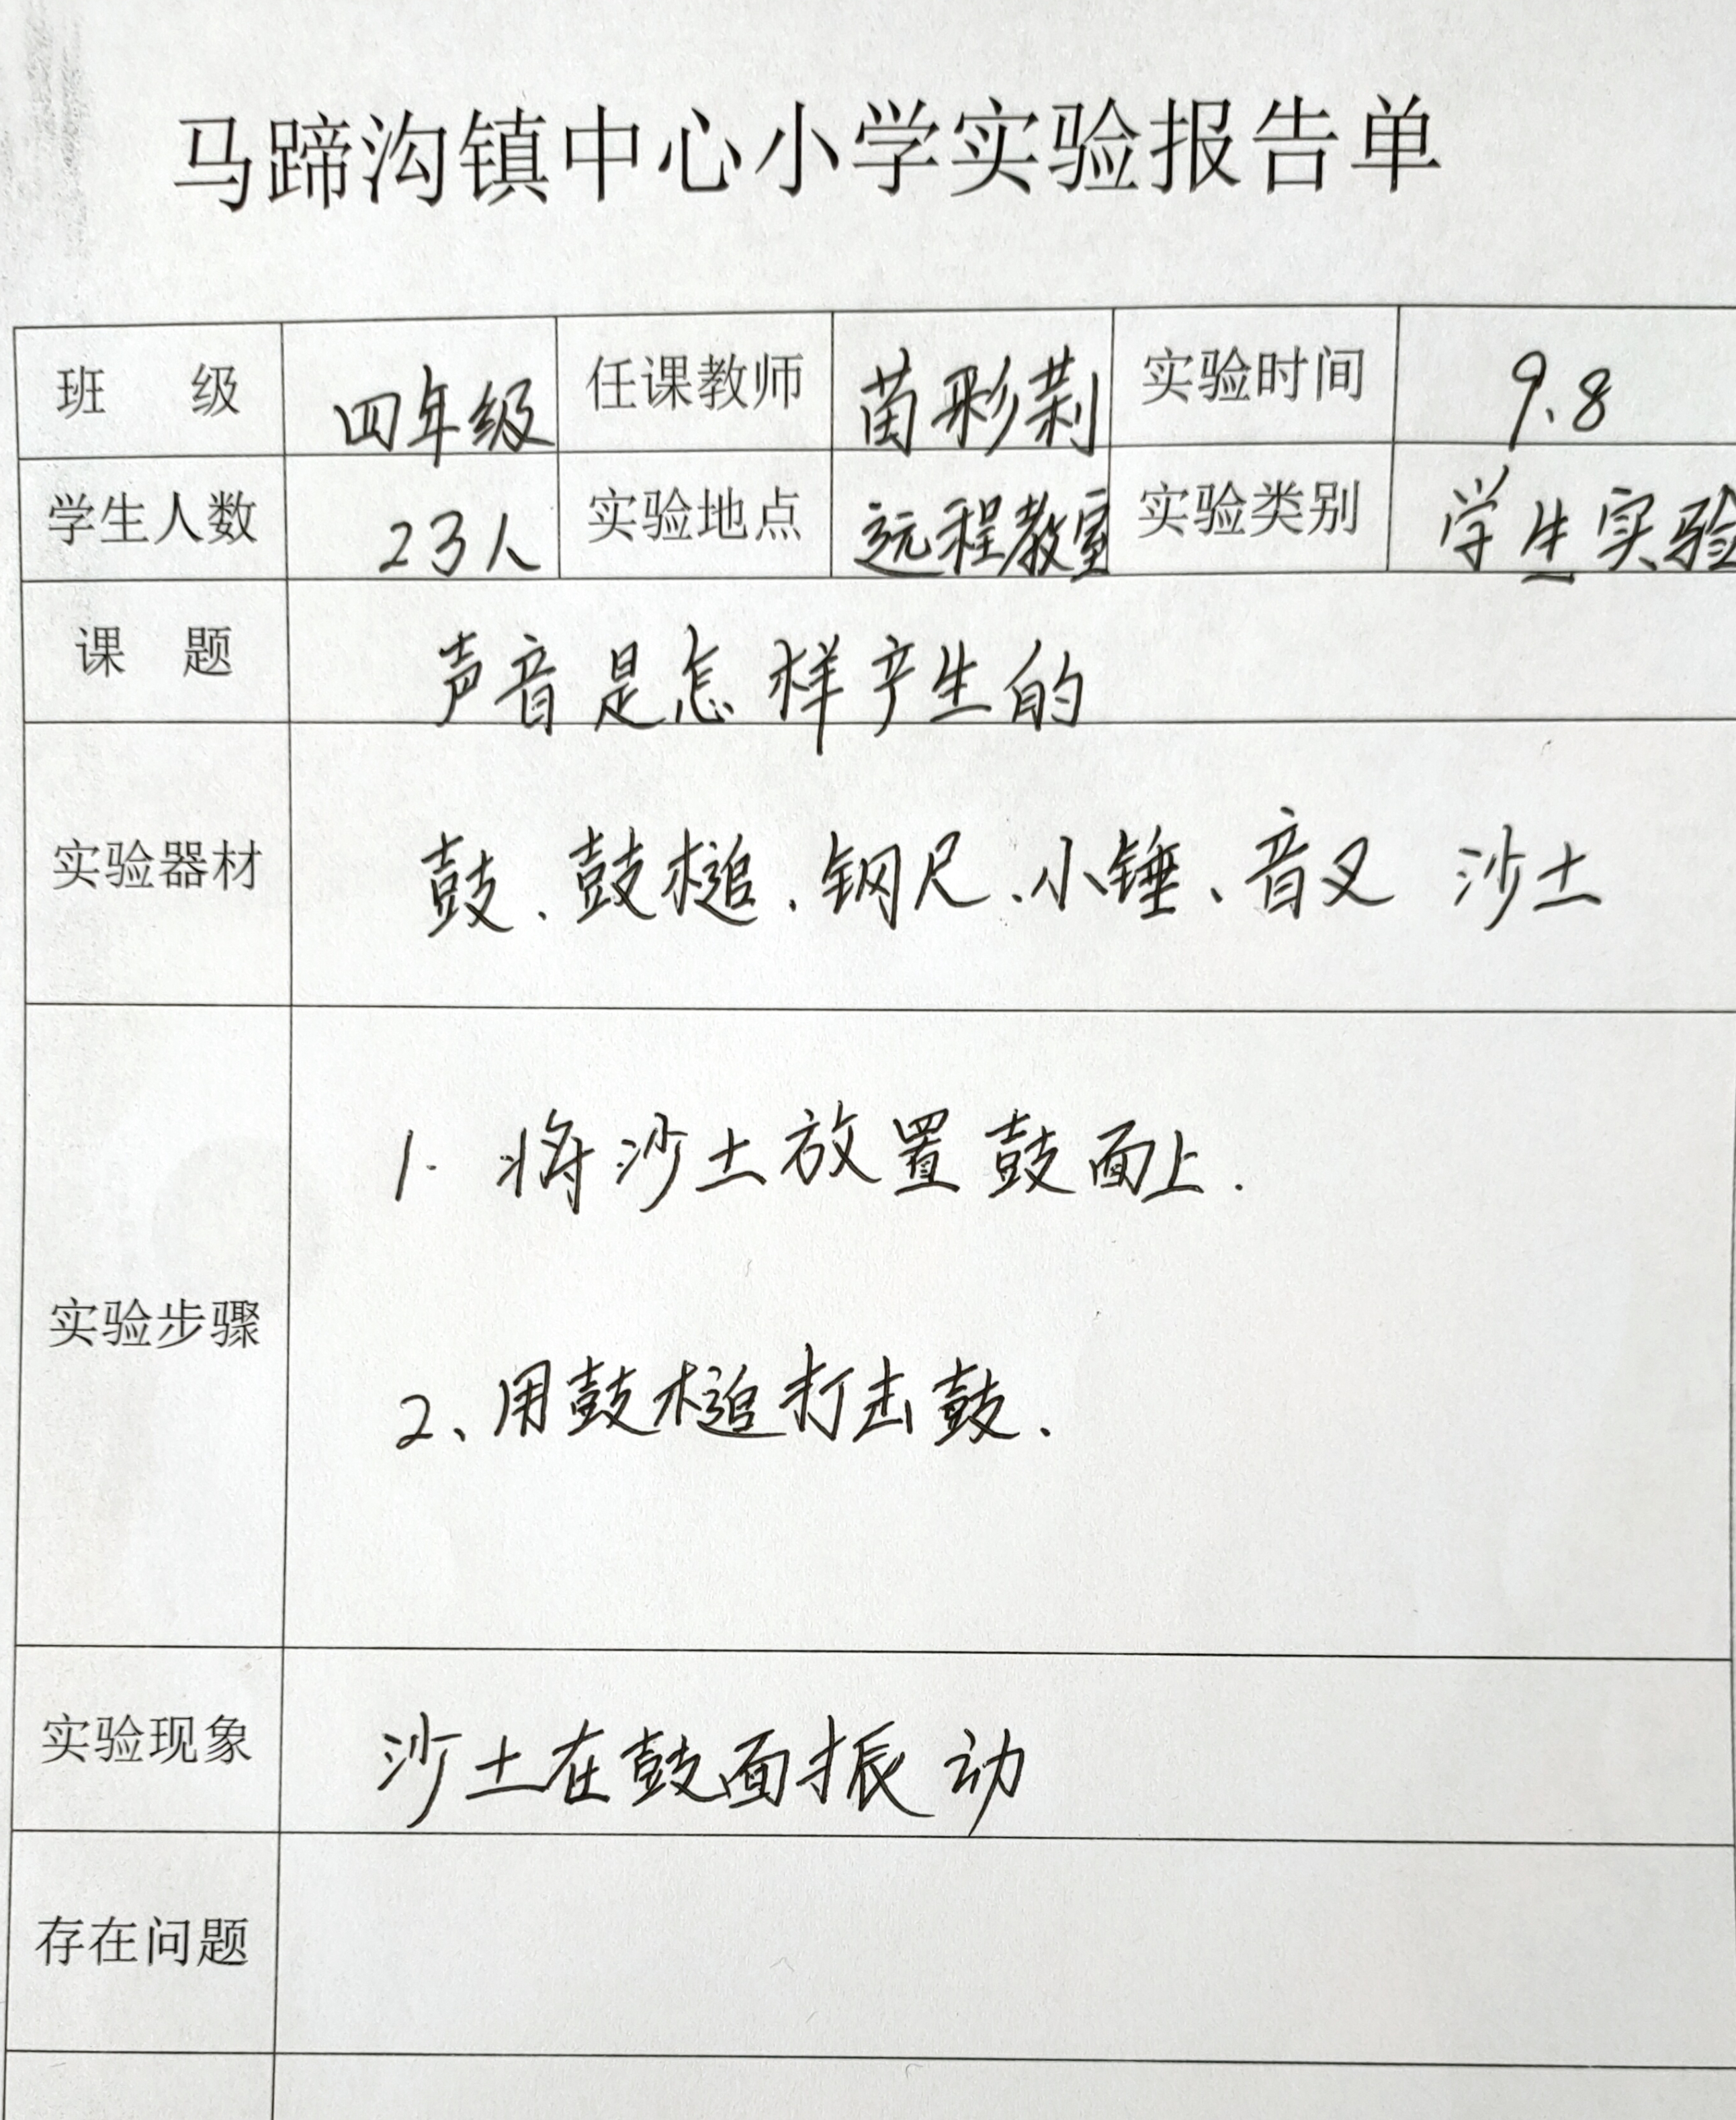 马蹄沟镇中心小学实验报告单
班 级 四年级 任课教师 苗彩莉 实验时间 9.8
学生人数 23人 实验地点 远程教室 实验类别 学生实验
课 题 声音是怎样产生的
实验器材 鼓、鼓槌、钢尺、小锤、音叉 沙土
1. 将沙土放置鼓面上.
实验步骤
2、用鼓槌打击鼓.
实验现象 沙土在鼓面振动
存在问题